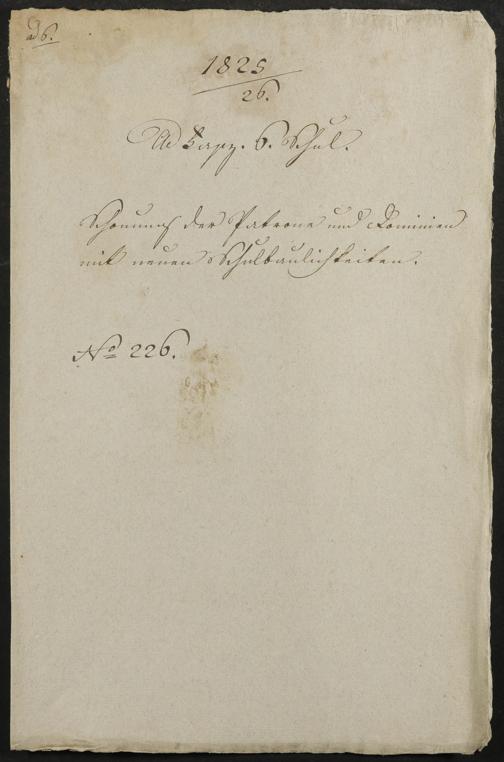 ad 6.
1825
26.
Ad Kapp. 6. Schul.
Schonung der Patrone und Dominien
mit neuen Schulbaulichkeiten.
No 226.